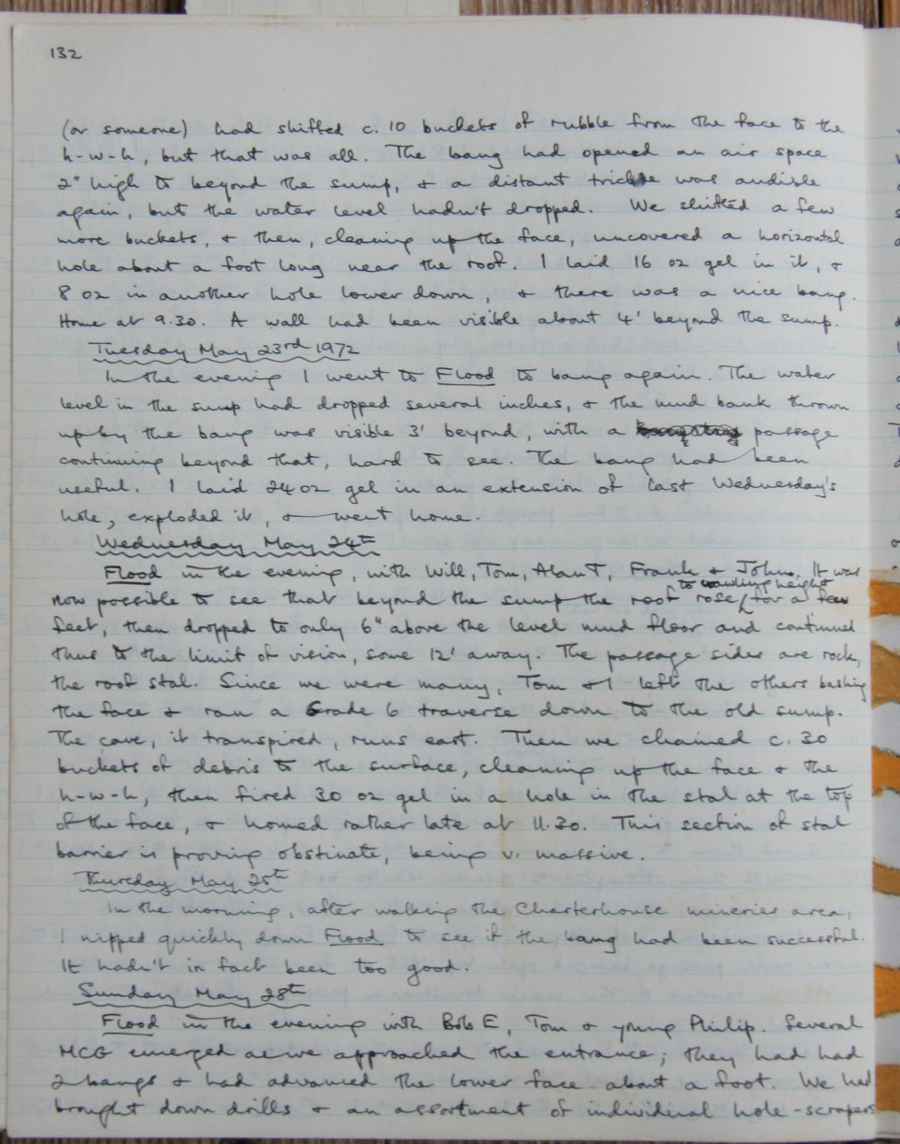 132
(or someone) had shifted c. 10 buckets of rubble from the face to the
h-w-h, but that was all. The bang had opened an air space
2" high to beyond the sump, & a distant trickle was audible
again, but the water level hadn't dropped. We shifted a few
more buckets, & then, cleaning up the face, uncovered a horizontal
hole about a foot long near the roof. I laid 16 oz gel in it, &
8 oz in another hole lower down, & there was a nice bang.
Home at 9.30. A wall had been visible about 4' beyond the sump.
Tuesday May 23rd 1972
In the evening I went to Flood to bang again. The water
level in the sump had dropped several inches, & the mud bank thrown
up by the bang was visible 3' beyond, with a passage
continuing beyond that, hard to see. The bang had been
useful. I laid 24 oz gel in an extension of last Wednesday's
hole, exploded it, & went home.
Wednesday May 24th
Flood in the evening, with Will, Tom, Alan T, Frank & John. It was
now possible to see that beyond the sump the roof rose to walking height for a few
feet, then dropped to only 6" above the level mud floor and continued
thus to the limit of vision, some 12' away. The passage sides are rock,
the roof stal. Since we were many, Tom & I left the others bashing
the face & ran a Grade 6 traverse down to the old sump.
The cave, it transpired, runs east. Then we chained c. 30
buckets of debris to the surface, cleaning up the face & the
h-w-h, then fired 30 oz gel in a hole in the stal at the top
of the face, & homed rather late at 11.30. This section of stal
barrier is proving obstinate, being v. massive.
Thursday May 25th
In the morning, after walking the Charterhouse mineries area,
I nipped quickly down Flood to see if the bang had been successful.
It hadn't in fact been too good.
Sunday May 28th
Flood in the evening with Bob E, Tom & young Philip. Several
MCG emerged as we approached the entrance; they had had
2 bangs & had advanced the lower face about a foot. We had
brought down drills & an assortment of individual hole-scrapers